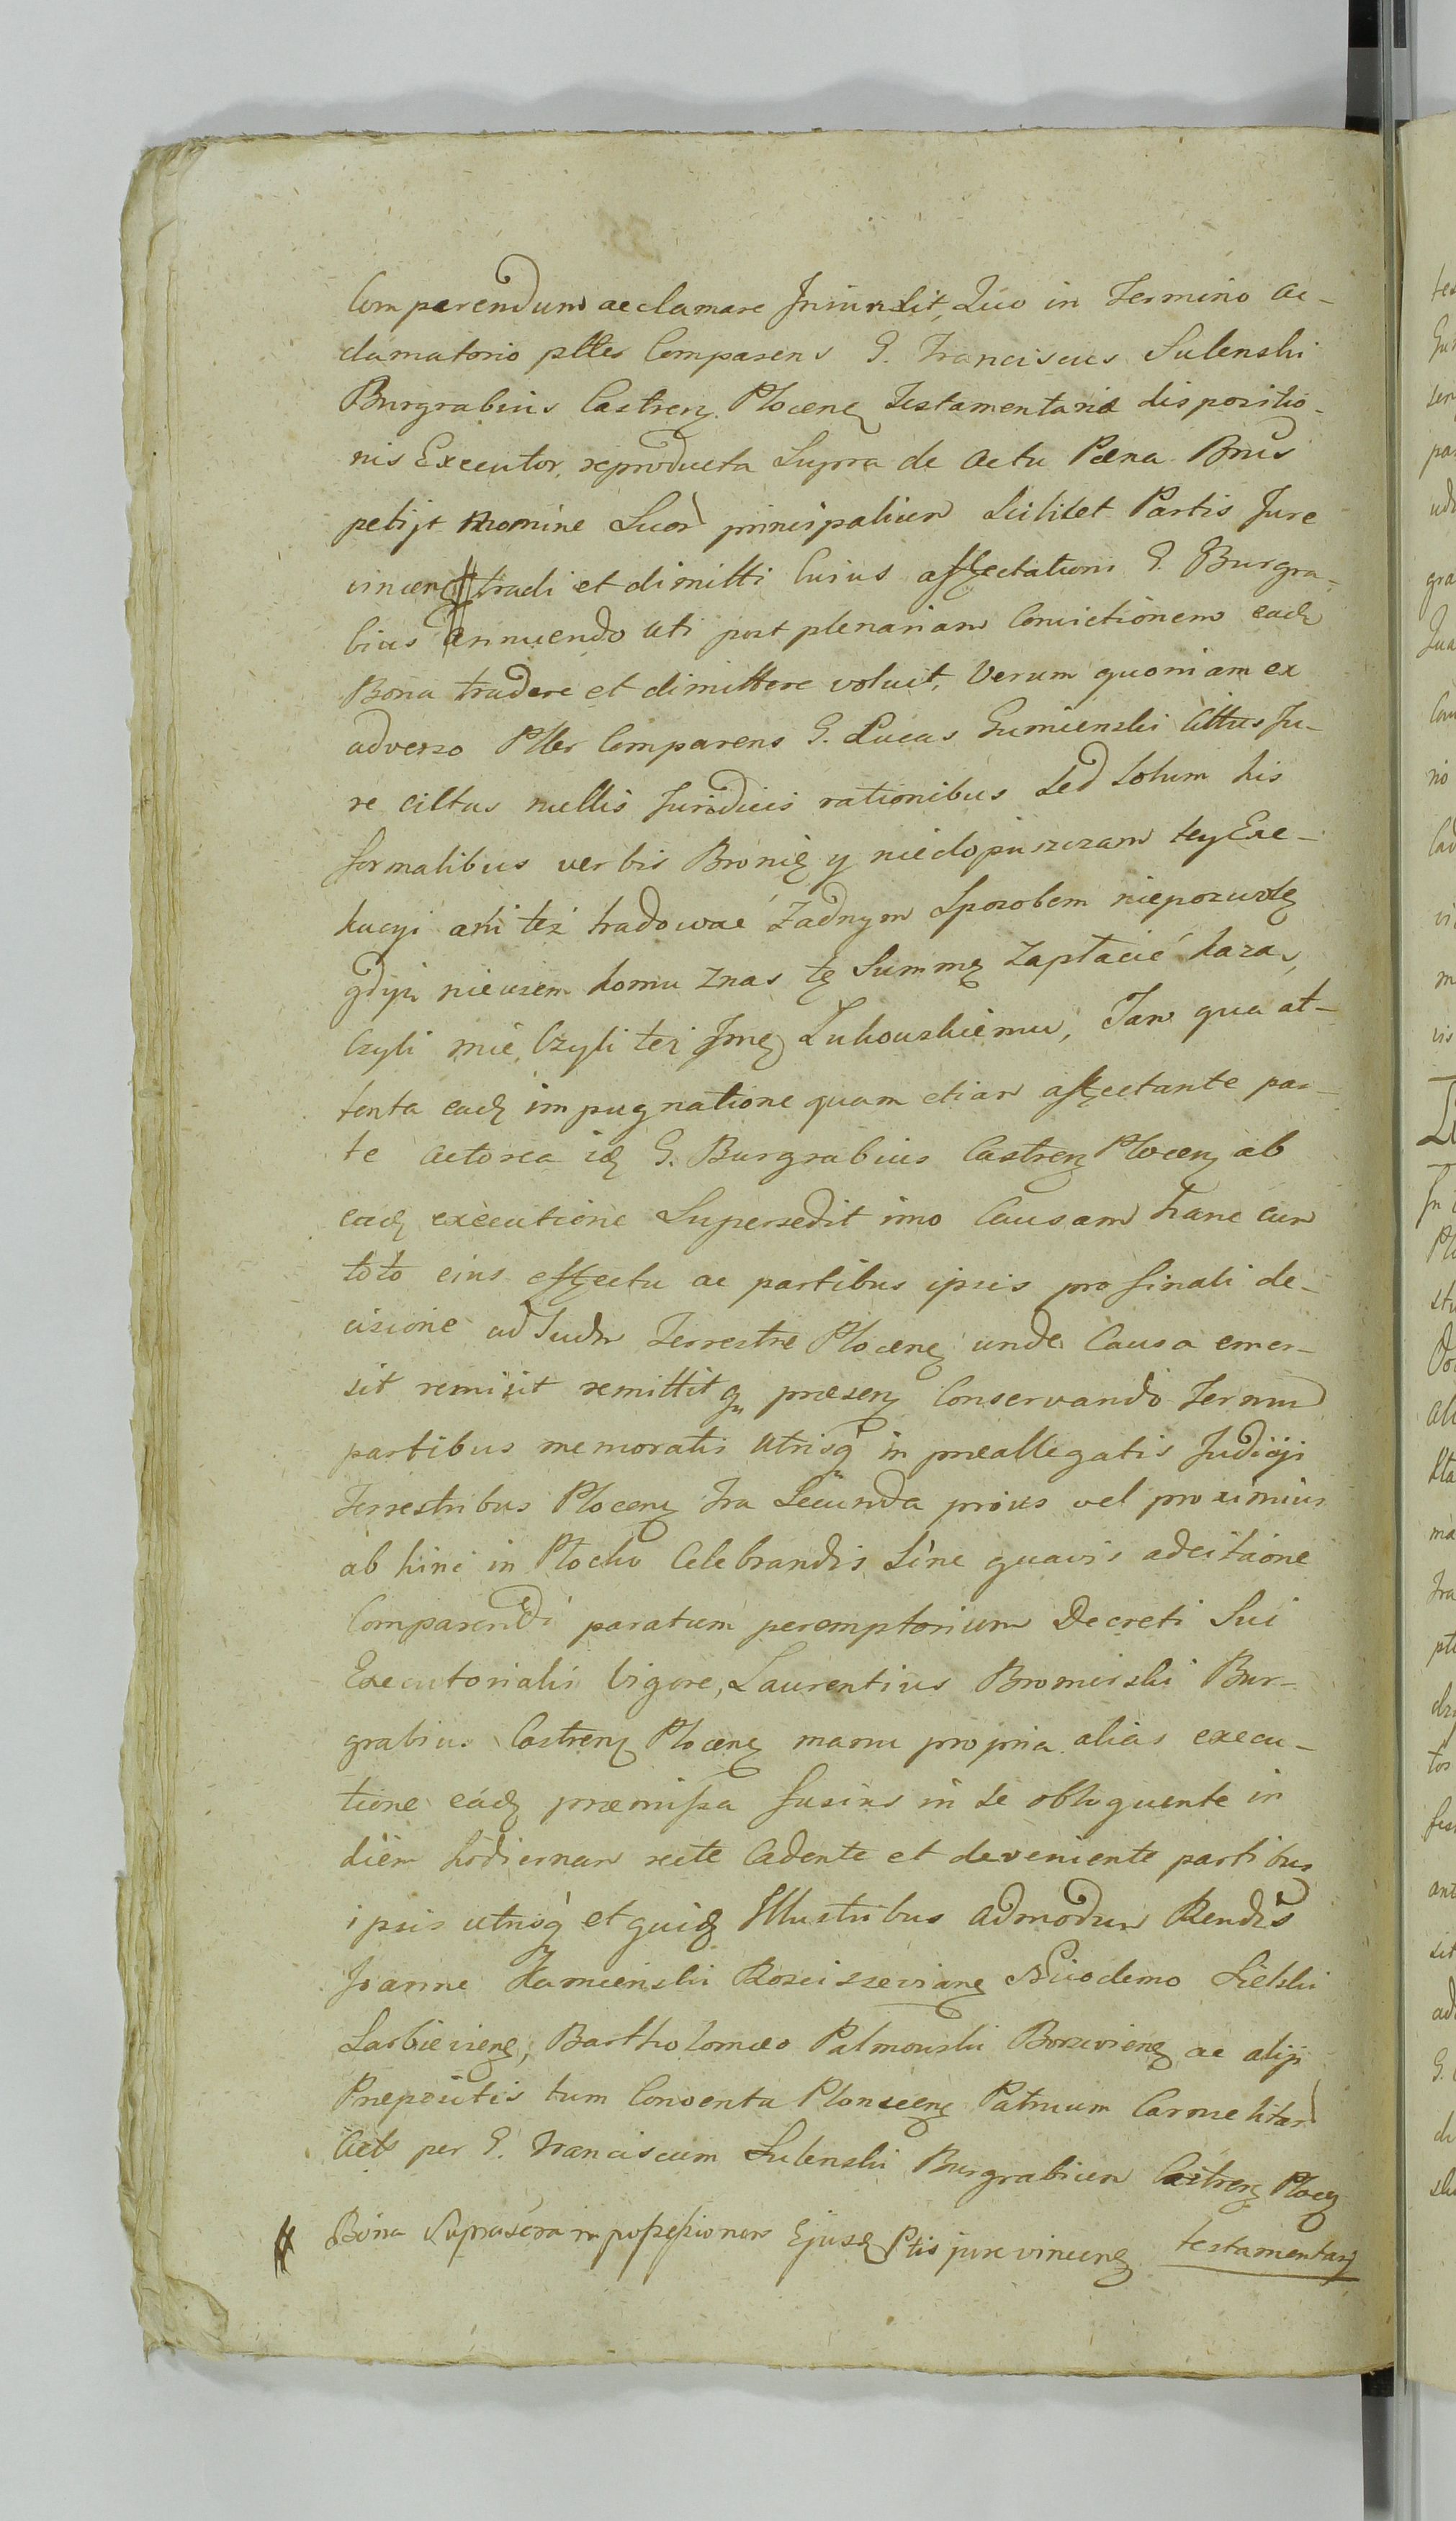 Comparendum acclamare Iniunxit, Quo in Termino Ac-
clamatorio pller Comparens G. Franciscus Sulenski
Burgrabius Castrenς Plocenς Testamentariæ dispositio-
nis Executor, reproducta Supra de Actu Pæna Bnis
petijt Nomine Suor principalium Scilicet Partis Jure
vincenς # tradi et dimitti Cuius affectationi G. Burgra-
bius annuendo uti post plenariam Convictionem eadς
Bona tradere et dimittere voluit, Verum quoniam ex
adverso Pller Comparens G. Lucas Gumienski Cittus Ju-
re cittus nullis Juridicis rationibus Sed Solum his
formalibus verbis Bronię y niedopuszczam tey Exe-
kucyi ani też tradować Żadnym Sposobem niepozwolę
gdysz niewiem komu z nas tę Summę zapłacić każą,
Czyli mie, Czyli też Jmς Łukowskiemu, Tan qua at-
tenta eadς impugnatione quam etiam affectante par-
te Actorea idς G. Burgrabius Castrenς Plocenς ab
eadς executione Supersedit imo Causam hanc cum
toto eius effectu ac partibus ipsis pro finali de-
cisione ad Judm Terrestre Plocenς unde Causa emer-
sit remisit remittitq præsenς Conservando Termin
partibus memoratis utrisq in præallegatis Judicijs
Terrestribus Plocenς Fra Secunda prius vel proximius
ab hinc in Płocku Celebrandis Sine quavis adcitaone
Comparendi paratum peremptorium Decreti Sui
Executorialis Vigore, Laurentius Bromirski Bur-
grabius Castrenς Plocenς manu propria alias execu-
tione eadς præmissa fusius in se obloquente in
diem hodiernam recte Cadente et deveniente partibus
ipsis utrisq et quidς Illustribus Admodum Rendis
Joanne Kamienski Rosciszevianς Nicodemo Sielski
Sarbieviens, Bartholomæo Palmowski Borzeviens ac alijs
Præpositis tum Conventu Plonscenς Patrum Carmelitar
Actb per G. Franciscum Sulenski Burgrabium Castrenς Plocς
# Bona Suprascra in possessionem Ejusdς Ptis jure vincenς testamentarij